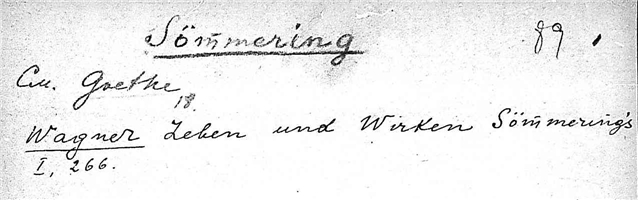 Sömmering 89.
См. Goethe
18.
Wagner Leben und Wirken Sömmering's
I, 266.